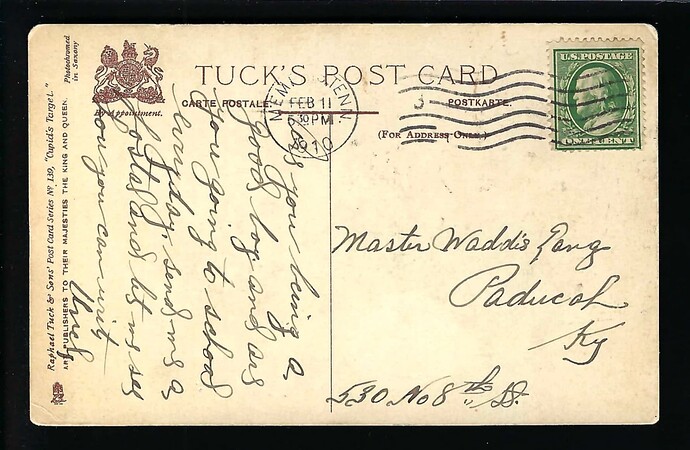 Photochromed
in Saxony
TUCK'S POST CARD
CARTE POSTALE.
POSTKARTE.
(FOR ADDRESS ONLY.)
By Appointment.
MEMPHIS, TENN
FEB 11
5 30 PM
1910
U.S. POSTAGE
ONE CENT
Raphael Tuck & Sons' Post Card Series No 139, "Cupid's Target."
ART PUBLISHERS TO THEIR MAJESTIES THE KING AND QUEEN.
you being a
good boy and are
you going to school
everyday, send me a
postal and let me see
how you can write
Uncle
Master Waddie Lang
Paducah
Ky
530 No 8th St.